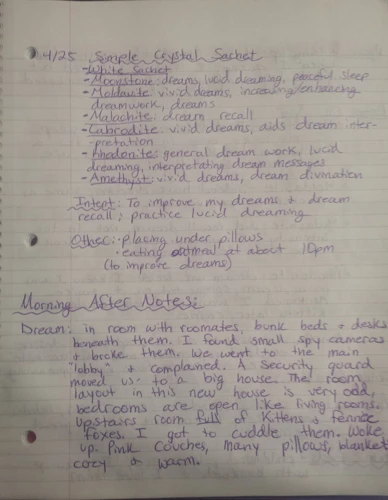 4/25 Simple Crystal Sachet
-White Sachet
-Moonstone: dreams, lucid dreaming, peaceful sleep
-Moldavite: vivid dreams, increasing/enhancing
dreamwork, dreams
-Malachite: dream recall
-Labrodite: vivid dreams, aids dream inter-
pretation
-Rhodonite: general dream work, lucid
dreaming, interpretating dream messages
-Amethyst: vivid dreams, dream divination
Intent: To improve my dreams & dream
recall; practice lucid dreaming
Other: -placing under pillows
-eating oatmeal at about 10pm
(to improve dreams)
Morning After Notes:
Dream: in room with roomates, bunk beds & desks
beneath them. I found small spy cameras
& broke them. We went to the main
"lobby" & complained. A security guard
moved us to a big house. The room
layout in this new house is very odd,
bedrooms are open like living rooms.
Upstairs room full of kittens & fennec
foxes. I got to cuddle them. Woke
up. Pink couches, many pillows, blanket
cozy & warm.